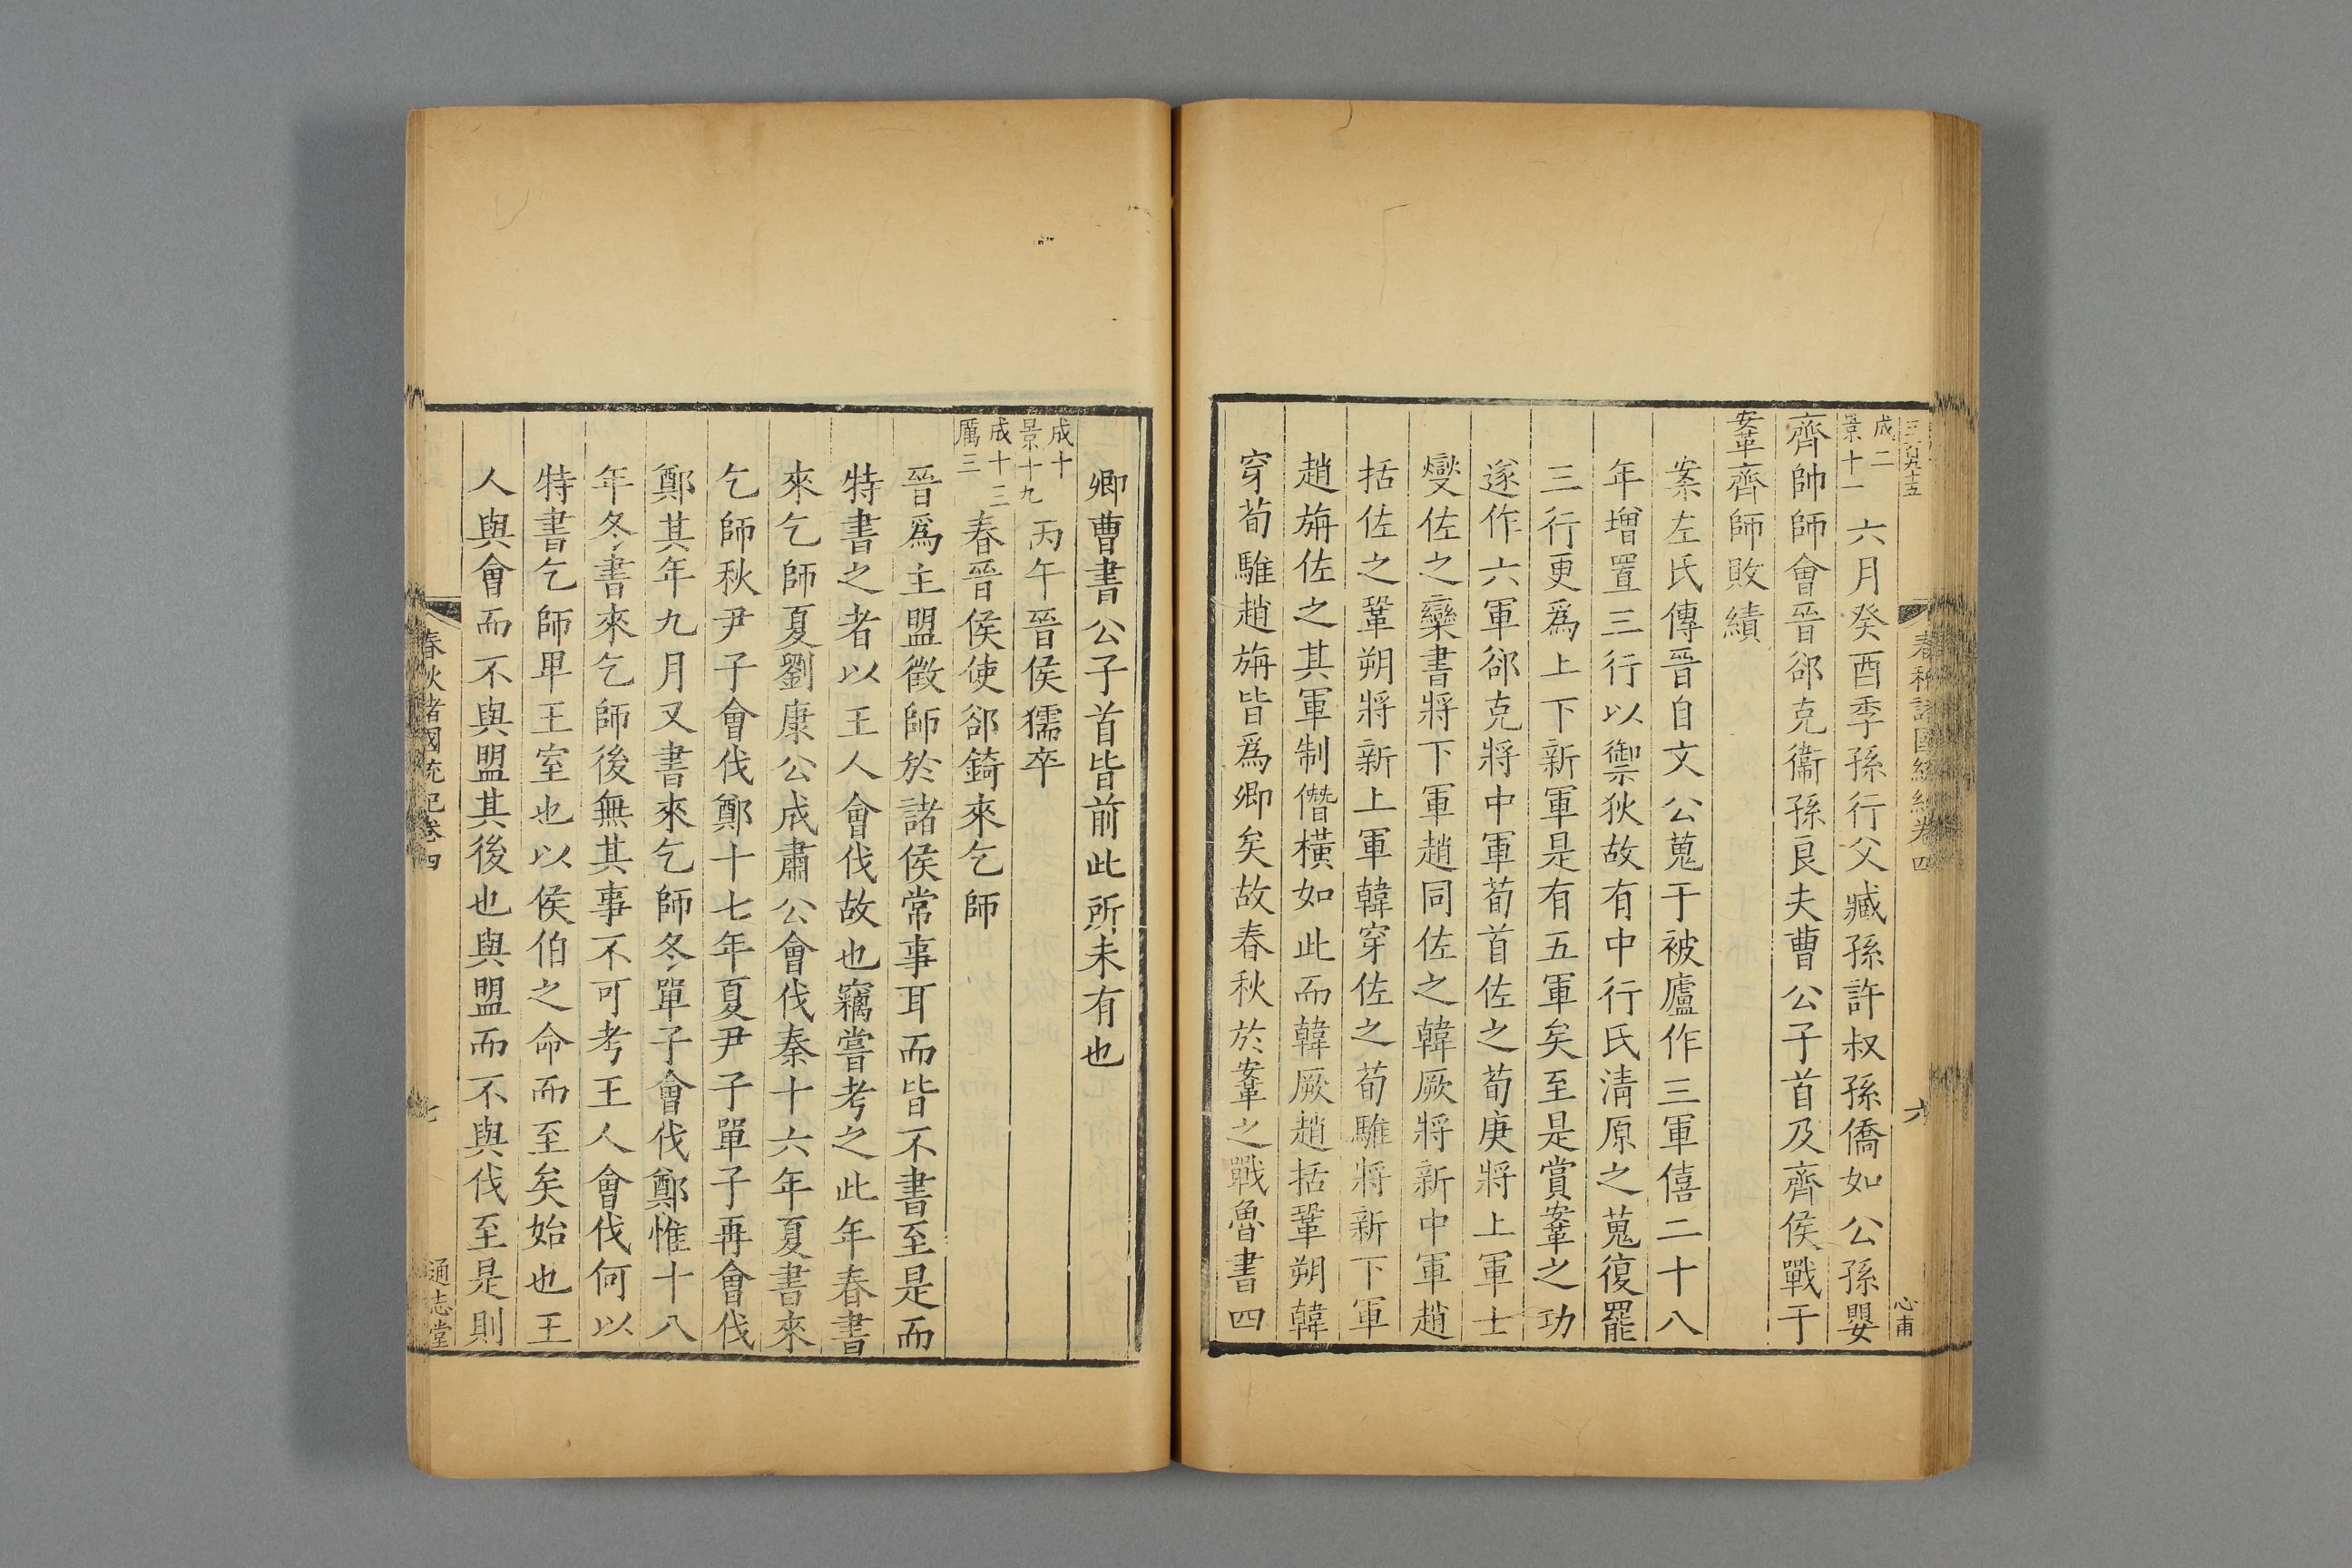 三百九十五
春秋諸國統紀卷四
六
心甫
成二
景十一
六月癸酉季孫行父臧孫許叔孫僑如公孫嬰
齊帥師會晉郤克衞孫良夫曹公子首及齊侯戰于
鞌齊師敗績
案左氏傳晉自文公蒐于被廬作三軍僖二十八
年增置三行以禦狄故有中行氏淸原之蒐復罷
三行更爲上下新軍是有五軍矣至是賞鞌之功
遂作六軍郤克將中軍荀首佐之荀庚將上軍士
燮佐之欒書將下軍趙同佐之韓厥將新中軍趙
括佐之鞏朔將新上軍韓穿佐之荀騅將新下軍
趙旃佐之其軍制僭橫如此而韓厥趙括鞏朔韓
穿荀騅趙旃皆爲卿矣故春秋於鞌之戰魯書四
卿曹書公子首皆前此所未有也
成十
景十九
丙午晉侯獳卒
成十三
厲三
春晉侯使郤錡來乞師
晉爲主盟徵師於諸侯常事耳而皆不書至是而
特書之者以王人會伐故也竊嘗考之此年春書
來乞師夏劉康公成肅公會伐秦十六年夏書來
乞師秋尹子會伐鄭十七年夏尹子單子再會伐
鄭其年九月又書來乞師冬單子會伐鄭惟十八
年冬書來乞師後無其事不可考王人會伐何以
特書乞師卑王室也以侯伯之命而至矣始也王
人與會而不與盟其後也與盟而不與伐至是則
春秋諸國統紀卷四
七
通志堂